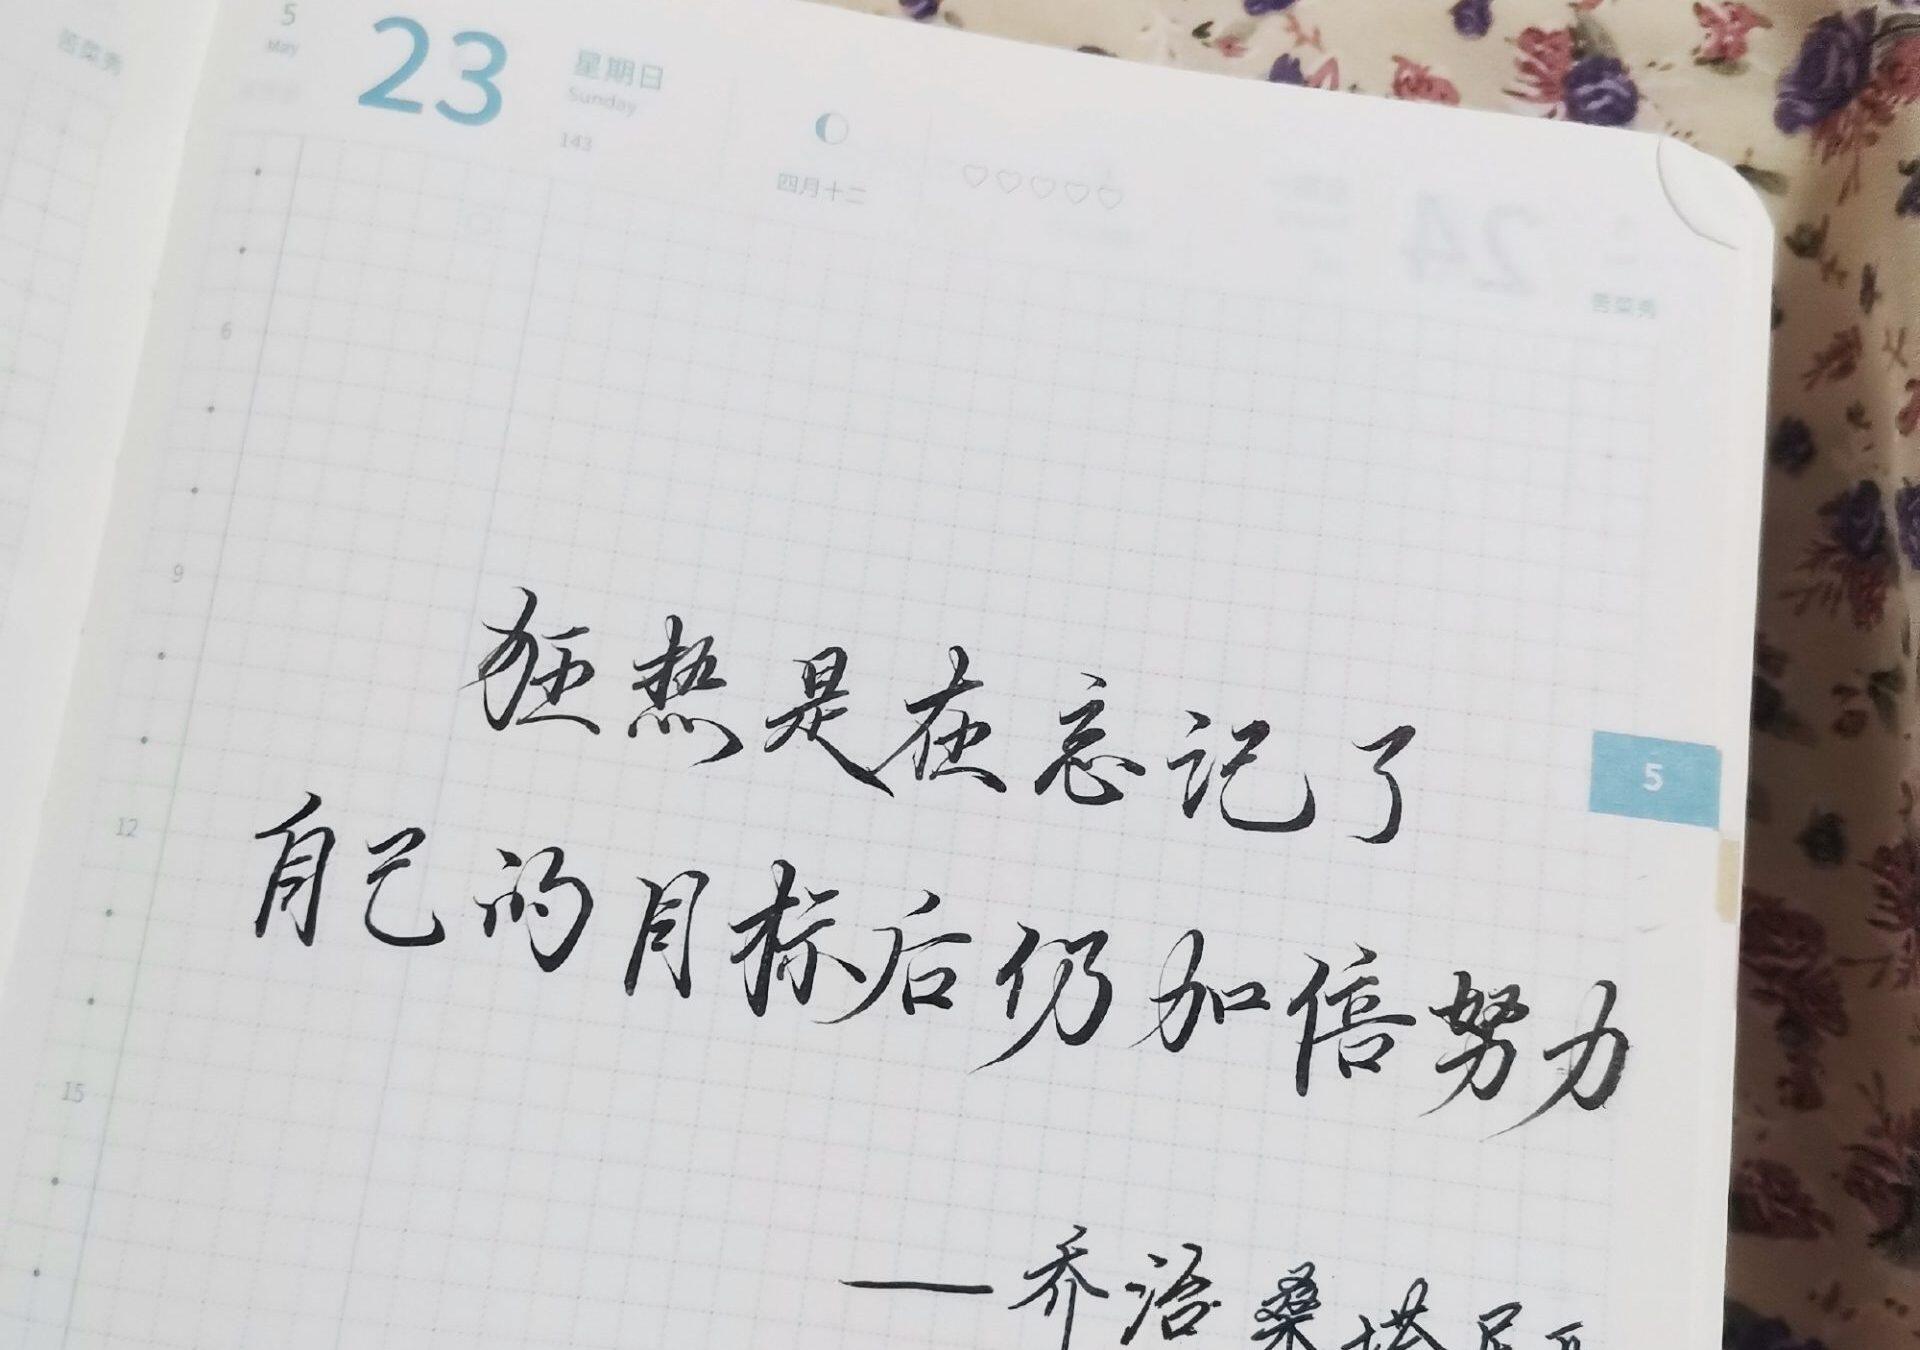 苦菜秀
5
May
23
星期日
Sunday
143
四月十二
苦菜秀
6
9
12
15
5
狂热是在忘记了
自己的目标后仍加倍努力
——乔治桑塔